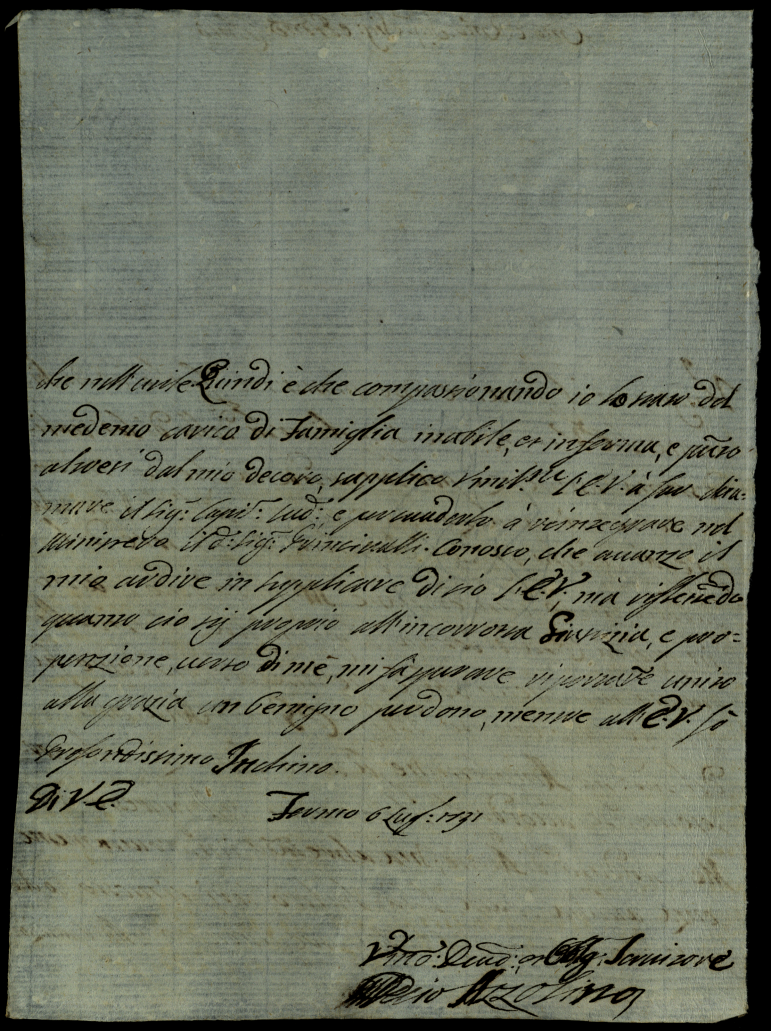 che nell'civile. Quindi è che compassionando io lo stato del
medemo carico di Famiglia inabile, et inferma, e
altresì dal mio decoro, supplico Umil.te l'E.V. à far chia-
mare il Sig.r Capit.o e persuaderlo à reintegrare nel
Ministero il d.o Sig.r Conosco, che avanzo il
mio ardire in supplicare di ciò l'E.V., mà riflettendo
quanto ciò sij proprio all'incorrotta Giustizia, e pro-
penzione, verso di mè, mi fà sperare riportare unito
alla grazia un benigno perdono, mentre all'E.V. fò
Profondissimo Inchino.
Di V.E.
Fermo 6 1791
Um̃o Devo.mo et Obblg. Servitore
Azzolino